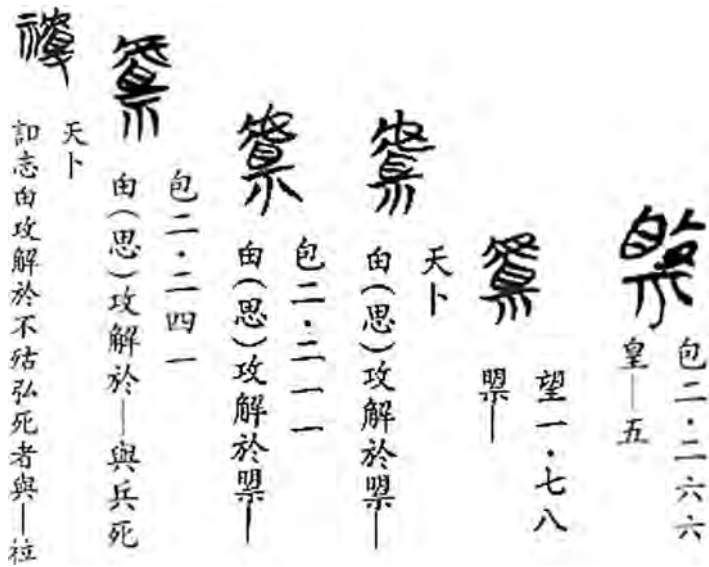 包二·二六六
皇—五
望一·七八
—
天卜
甶(思)攻解於—
包二·二一一
甶(思)攻解於—
包二·二四一
甶(思)攻解於—與兵死
天卜
志甶攻解於不弘死者與—